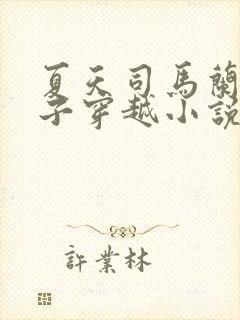 夏天司馬蘭
子穿越小說
許業林